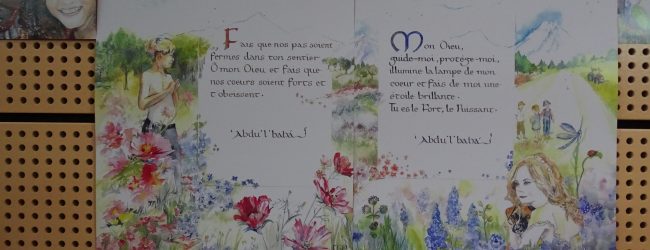 Fais que nos pas soient
fermes dans ton sentier
Ô mon Dieu et fais que
nos coeurs soient forts et
t'obeissent.
'Abdu'l'bahá
Mon Dieu,
guide-moi, protége-moi,
illumine la lampe de mon
coeur et fais de moi une
étoile brillante.
Tu es le Fort, le Puissant.
'Abdu'l'bahá